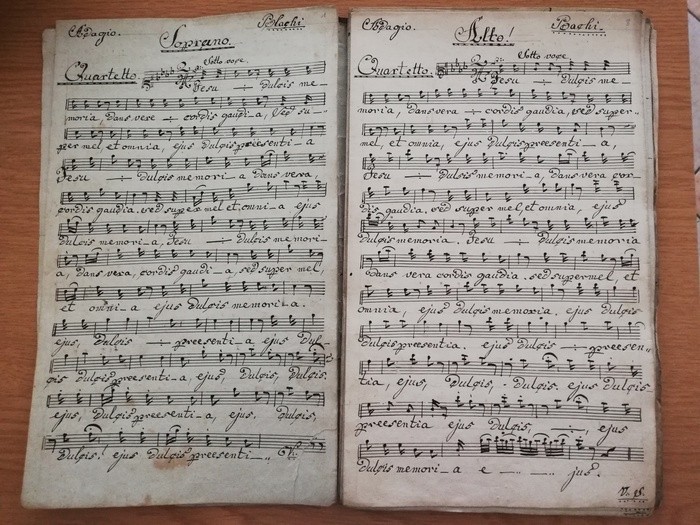 Adagio. Blachi.
Soprano.
Sotto voce.
Quartetto.
Jesu ÷ Dulcis me_
moria, Dans vere ÷ cordis gaudi_a, Sed su_
per mel et omnia, ejus Dulcis preesenti_a
Jesu ÷ Dulcis memori_a Dans vera,
cordis gaudia. sed super mel, et omni_a ejus
Dulcis memori_a, Jesu ÷ Dulcis memori_
a, Dans vera, cordis gaudi_a, sed super mel,
et omni_a ejus Dulcis memori_a.
ejus, Dulcis ÷ preesenti_a ejus Dul_
cis Dulcis preesenti_a, ejus, Dulcis, Dulcis.
ejus, Dulcis preesenti_a, ejus, Dulcis,
Dulcis! ejus Dulcis preesenti_..
Adagio. Bachi.
Alto!
Sotto voce.
Quartetto.
Jesu ÷ Dulcis me_
moria, Dans vera ÷ cordis gaudia, sed super_
mel, et omnia, ejus Dulcis preesenti_a
Jesu ÷ Dulcis memori_a, Dans vera cor_
dis gaudia. sed super mel, et omnia, ejus
Dulcis memoria. Jesu ÷ Dulcis memoria
Dans vera cordis gaudia. sed super mel, et
omnia, ejus Dulcis memoria. ejus Dulcis
Dulcis preesentia. ejus Dulcis ÷ preesen_
tia, ejus, Dulcis, Dulcis. ejus Dulcis
preesentia ejus Dulcis, ÷, ejus
Dulcis memori_a e_ _ _ jus.
V. S.